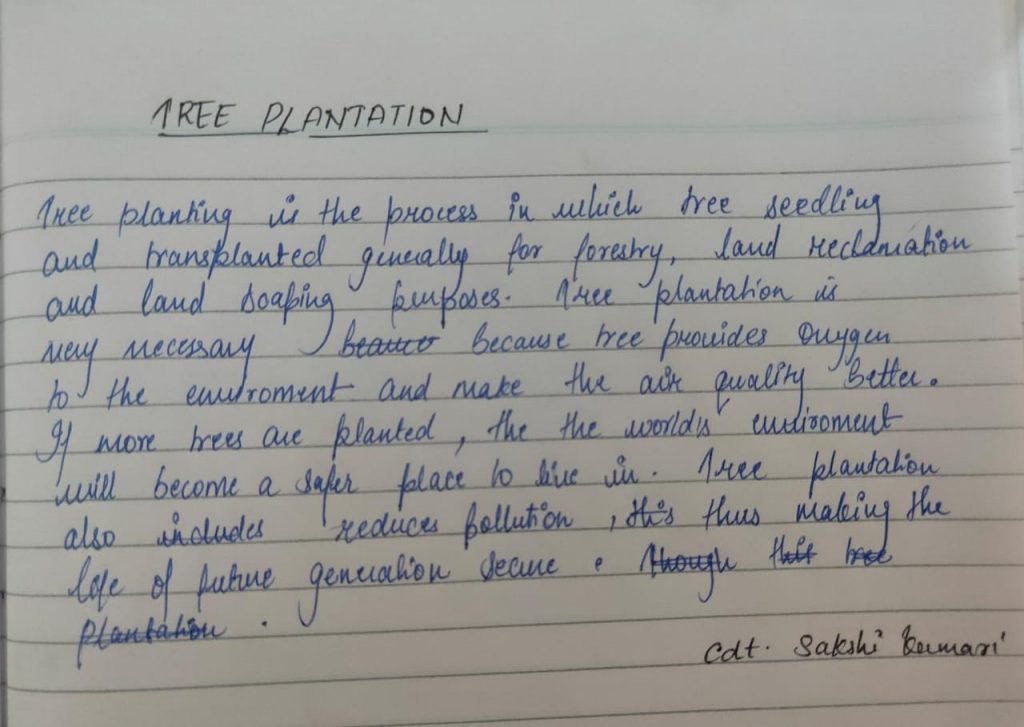 TREE PLANTATION
Tree planting is the process in which tree seedling
and transplanted generally for forestry, land reclamation
and land scaping purposes. Tree plantation is
very necessary because tree provides Oxygen
to the enviroment and make the air quality better.
If more trees are planted, the the world's enviroment
will become a safer place to live in. Tree plantation
also includes reduces pollution, this thus making the
life of future generation secure. Though that tree
plantation.
Cdt. Sakshi Kumari